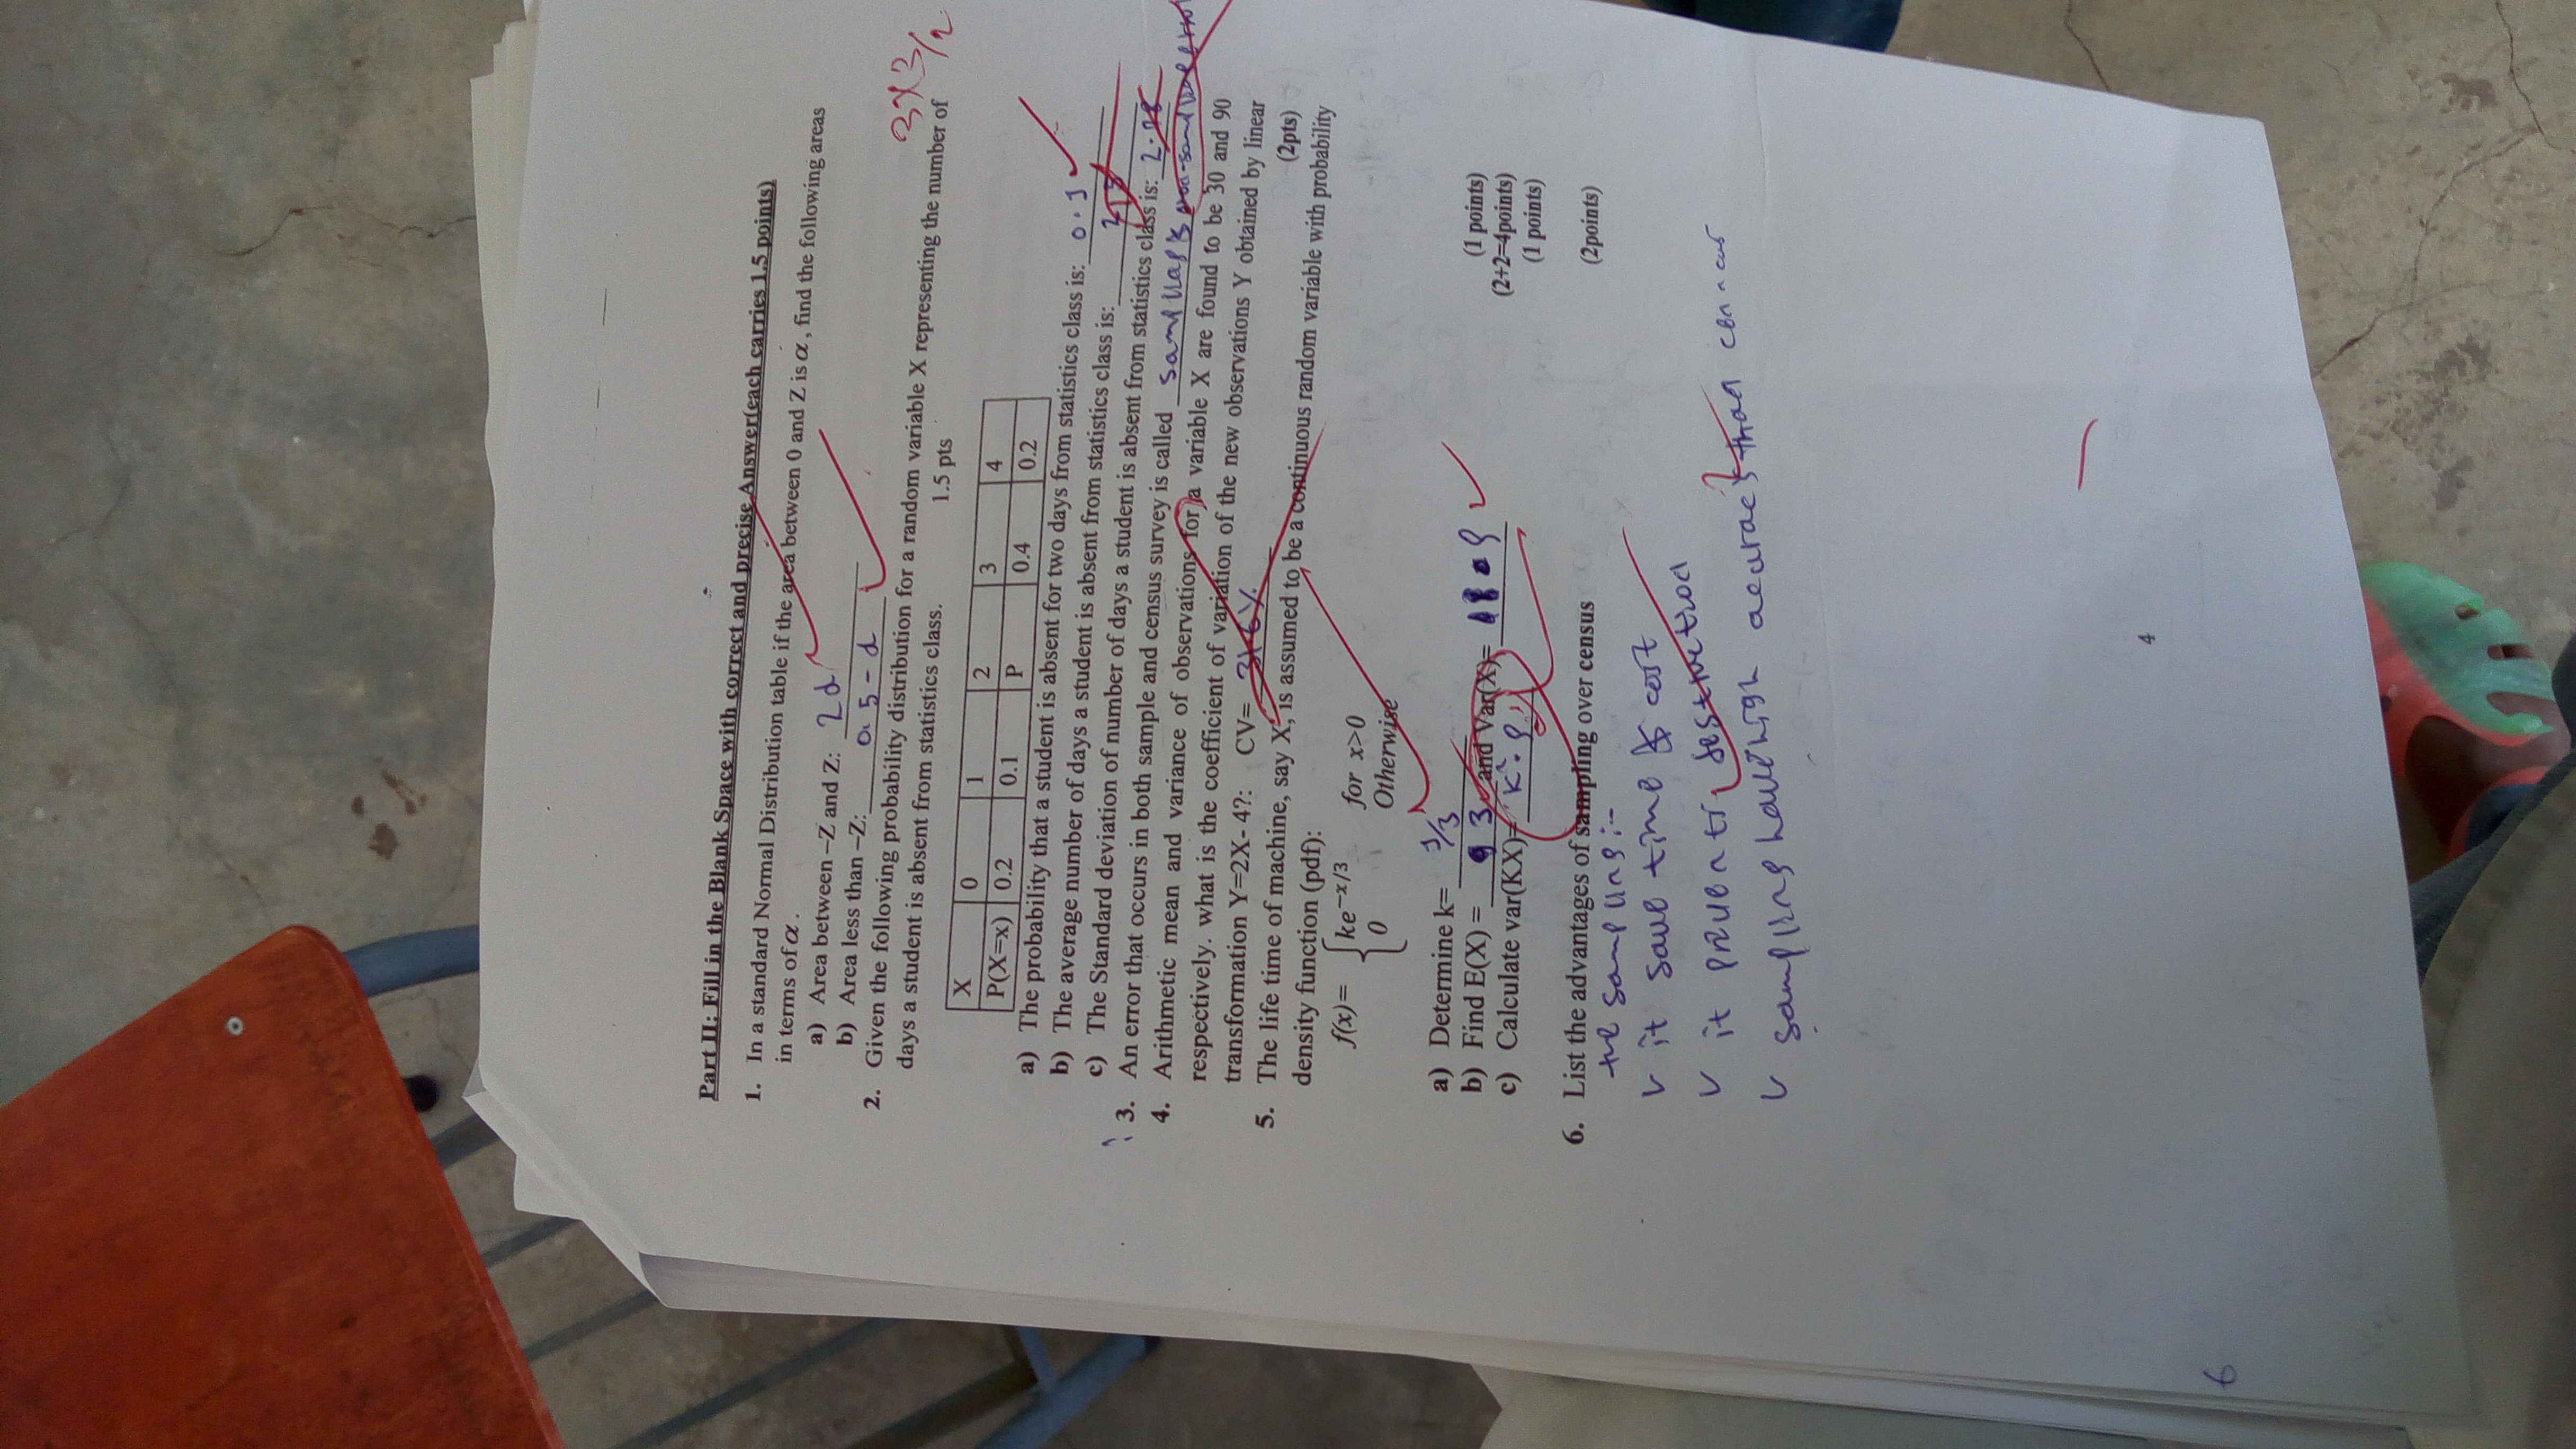 Part II: Fill in the Blank Space with correct and precise Answer(each carries 1.5 points)
1. In a standard Normal Distribution table if the area between 0 and Z is α, find the following areas
in terms of α.
a) Area between –Z and Z: 2α
b) Area less than –Z: 0.5-α
2. Given the following probability distribution for a random variable X representing the number of
days a student is absent from statistics class. 1.5 pts
3X3/2
X 0 1 2 3 4
P(X=x) 0.2 0.1 P 0.4 0.2
a) The probability that a student is absent for two days from statistics class is: 0.1
b) The average number of days a student is absent from statistics class is:
c) The Standard deviation of number of days a student is absent from statistics class is:
3. An error that occurs in both sample and census survey is called
4. Arithmetic mean and variance of observations for a variable X are found to be 30 and 90
respectively. what is the coefficient of variation of the new observations Y obtained by linear
transformation Y=2X- 4?: CV=
(2pts)
5. The life time of machine, say X, is assumed to be a continuous random variable with probability
density function (pdf):
f(x)= { ke^−x/3 for x>0
0 Otherwise
a) Determine k= 1/3 (1 points)
b) Find E(X) = 3 and Var(X)= 9 (2+2=4points)
c) Calculate var(KX)= K².9 (1 points)
6. List the advantages of sampling over census (2points)
the sampling:-
✓ it save time & cost
✓ it prevents destruction
✓ sampling have high than
4
6